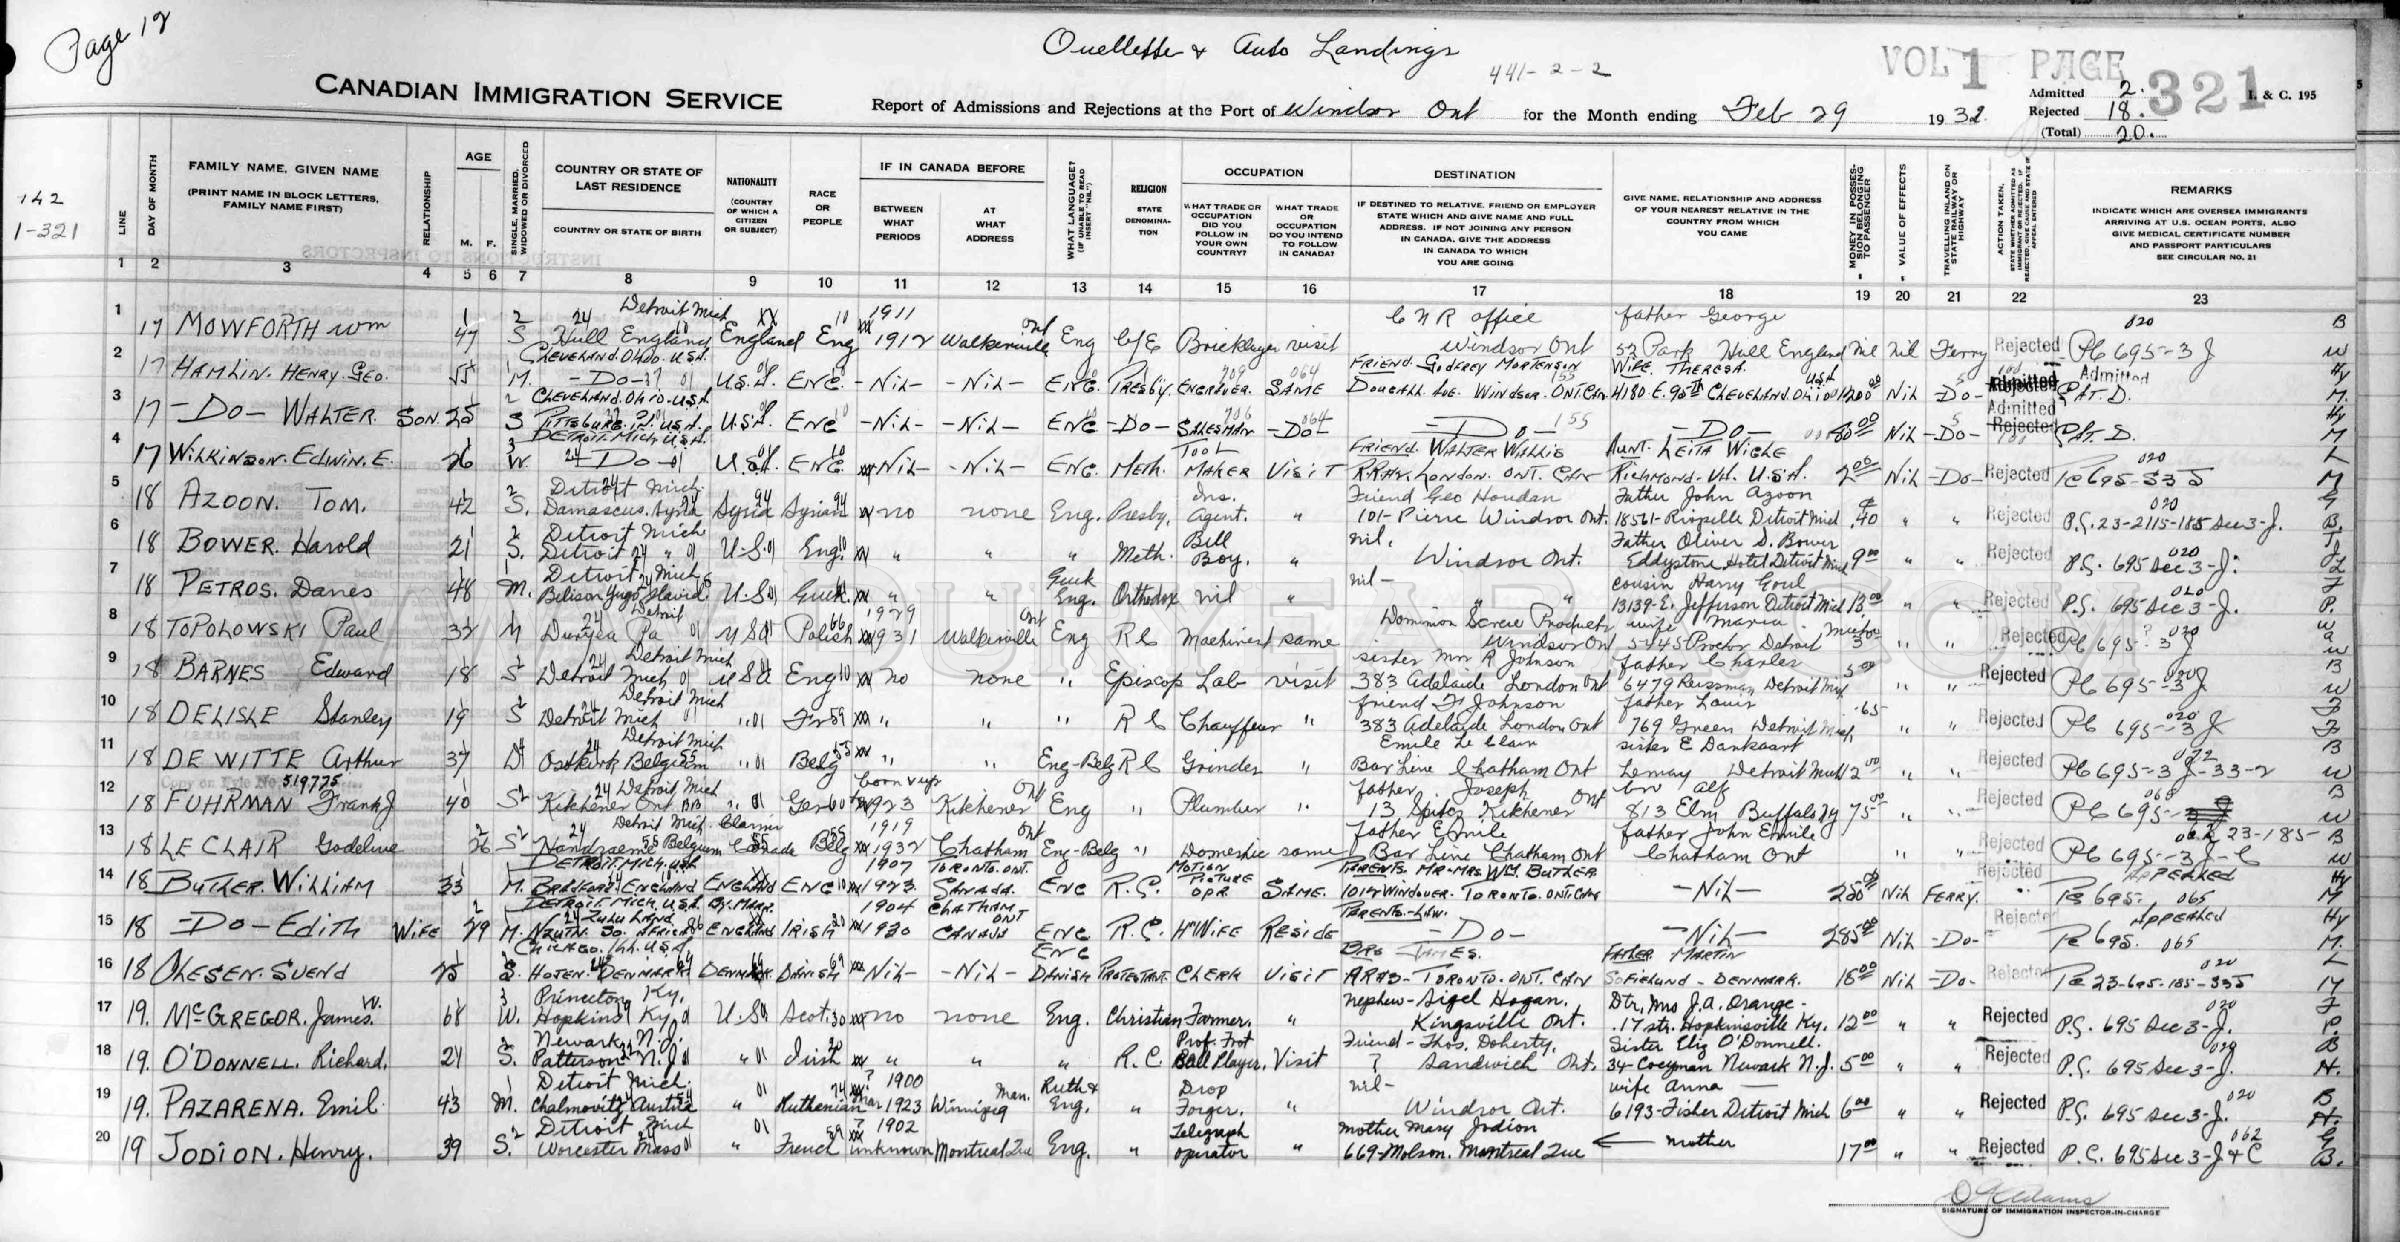 Page 12
Ouellette & Auto Landings
441-2-2
VOL 1 PAGE 321
CANADIAN IMMIGRATION SERVICE
Report of Admissions and Rejections at the Port of Windsor Ont for the Month ending Feb 29 1932
Admitted 2.
Rejected 18.
(Total) 20.
I. & C. 195
142
1-321
LINE
DAY OF MONTH
FAMILY NAME, GIVEN NAME
(PRINT NAME IN BLOCK LETTERS, FAMILY NAME FIRST)
RELATIONSHIP
AGE
M. F.
SINGLE, MARRIED, WIDOWED OR DIVORCED
COUNTRY OR STATE OF LAST RESIDENCE
COUNTRY OR STATE OF BIRTH
NATIONALITY
(COUNTRY OF WHICH A CITIZEN OR SUBJECT)
RACE OR PEOPLE
IF IN CANADA BEFORE
BETWEEN WHAT PERIODS
AT WHAT ADDRESS
WHAT LANGUAGE? (IF UNABLE TO READ INSERT "NIL")
RELIGION
STATE DENOMINATION
OCCUPATION
WHAT TRADE OR OCCUPATION DID YOU FOLLOW IN YOUR OWN COUNTRY?
WHAT TRADE OR OCCUPATION DO YOU INTEND TO FOLLOW IN CANADA?
DESTINATION
IF DESTINED TO RELATIVE, FRIEND OR EMPLOYER STATE WHICH AND GIVE NAME AND FULL ADDRESS. IF NOT JOINING ANY PERSON IN CANADA, GIVE THE ADDRESS IN CANADA TO WHICH YOU ARE GOING
GIVE NAME, RELATIONSHIP AND ADDRESS OF YOUR NEAREST RELATIVE IN THE COUNTRY FROM WHICH YOU CAME
MONEY IN POSSESSION BELONGING TO PASSENGER
VALUE OF EFFECTS
TRAVELLING INLAND ON STATE RAILWAY OR HIGHWAY
ACTION TAKEN,
REMARKS
INDICATE WHICH ARE OVERSEA IMMIGRANTS ARRIVING AT U.S. OCEAN PORTS, ALSO GIVE MEDICAL CERTIFICATE NUMBER AND PASSPORT PARTICULARS
SEE CIRCULAR NO. 21
1 2 3 4 5 6 7 8 9 10 11 12 13 14 15 16 17 18 19 20 21 22 23
1 Detroit Mich 1911 C N R office father George
17 MOWFORTH Wm 47 S Hull England England Eng 1912 Walkerville Ont Eng C/E Bricklayer visit Windsor Ont 52 Park Hull England nil nil Ferry Rejected PC 695-3 J
2 CLEVELAND. OHIO. U.S.A. FRIEND. GODFREY MORTENSON WIFE. THERESA.
17 HAMLIN. HENRY. GEO. 55 M. -DO- U.S.A. ENG. -NIL- -NIL- ENG. PRESBY. ENGRAVER. SAME DOUGALL AVE. WINDSOR. ONT. CAN 4180 E. 98th CLEVELAND. OHIO U.S.A. 1200 NIL -DO- Admitted
3 CLEVELAND. OHIO. U.S.A.
17 -DO- WALTER SON. 25 S PITTSBURG. PA. U.S.A. U.S.A. ENG -NIL- -NIL- ENG -DO- SALESMAN -DO- -DO- -DO- 80 NIL -DO- Admitted Rejected
4 DETROIT. MICH. U.S.A. TOOL FRIEND. WALTER WALLIS AUNT. LEITA WICKE
17 WILKINSON. EDWIN. E. 26 W. -DO- U.S.A. ENG. -NIL- -NIL- ENG. METH. MAKER VISIT LONDON. ONT. CAN RICHMOND. VA. U.S.A. 2 NIL -DO- Rejected
5 Detroit Mich. Ins. Friend Geo Houdan Father John Azoon
18 AZOON. TOM. 42 S. Damascus. Syria Syria Syrian no none Eng. Presby. Agent. " 101-Pierre Windsor Ont. 18561-Riopelle Detroit Mich .40 " " Rejected P.C. 23-2115-185 Sec 3-J.
6 Detroit Mich Bill nil. Father Oliver S. Bower
18 BOWER. Harold 21 S. Detroit " U.S. Eng. " " " Meth. Boy. " Windsor Ont. Eddystone Hotel Detroit Mich 9 " " Rejected P.C. 695 Sec 3-J.
7 Detroit Mich. Greek nil- cousin Harry Goul
18 PETROS. Danes 48 M. U.S. Greek. " " Eng. Orthodox nil " " " 13139-E. Jefferson Detroit Mich 13 " " Rejected P.C. 695 Sec 3-J.
8 Detroit 1929 Dominion Screw Products wife Maria
18 TOPOLOWSKI Paul 32 M Duryea Pa USA Polish 1931 Walkerville Ont Eng RC Machinist same Windsor Ont 5445 Proctor Detroit 3 " " Rejected PC 695-3 J
9 Detroit Mich sister Mrs R Johnson father Charles
18 BARNES Edward 18 S Detroit Mich USA Eng no none " Episcop Lab visit 383 Adelaide London Ont 6479 Detroit Mich 5 " " Rejected PC 695-3 J
10 Detroit Mich friend F Johnson father Louis
18 DELISLE Stanley 19 S Detroit Mich " Fr " " " RC Chauffeur " 383 Adelaide London Ont 769 Green Detroit Mich .65 " " Rejected PC 695-3 J
11 Detroit Mich Emile Le Clair sister E Dankaart
18 DE WITTE Arthur 37 D Belgium " Belg " " Eng-Belg RC Grinder " Bar Line Chatham Ont Lemay Detroit Mich 2 " " Rejected PC 695-3 J-33-2
Copy on File No. 519775
12 Detroit Mich born & up father Joseph bro Alf
18 FUHRMAN Frank J 40 S Kitchener Ont " Ger 1923 Kitchener Ont Eng " Plumber " 13 Kitchener Ont 813 Elm Buffalo NY 75 " " Rejected PC 695-
13 Detroit Mich 1919 father Emile father John Emile
18 LE CLAIR Godeline 26 S Belgium Canada Belg 1932 Chatham Ont Eng-Belg " Domestic same Bar Line Chatham Ont Chatham Ont " " Rejected PC 695-3 J-C 23-185-
14 DETROIT. MICH. USA 1907 TORONTO. ONT. MOTION PICTURE PARENTS. MR & MRS WM. BUTLER APPEALED
18 BUTLER. WILLIAM 33 M. BRADFORD. ENGLAND ENGLAND ENG 1923 CANADA. ENG R.C. OPR. SAME. 1012 WINDOVER. TORONTO. ONT. CAN -NIL- 250 NIL FERRY. Rejected PC 695.
15 DETROIT. MICH. U.S.A. BY. MARR. 1904 CHATHAM, ONT PARENTS-LAW. APPEALED
18 -DO- EDITH WIFE 29 M. ZULU LAND SO. AFRICA ENGLAND IRISH 1920 CANADA ENG R.C. H'WIFE RESIDE -DO- -NIL- 285 NIL -DO- Rejected PC 695.
16 CHICAGO. ILL. U.S.A. ENG BRO JAMES. FATHER MARTIN
18 OLESEN. SUEND 25 S. DENMARK DENMARK. DANISH -NIL- -NIL- DANISH PROTESTANT. CLERK VISIT TORONTO. ONT. CAN DENMARK. 18 NIL -DO- Rejected PC 23-695-185-
17 Princeton Ky. nephew-Sigel Hogan. Dtr, Mrs J.A. Orange-
19. McGREGOR. James W. 68 W. Hopkins Ky. U.S. Scot. no none Eng. Christian Farmer. " Kingsville Ont. 17 str. Hopkinsville Ky. 12 " " Rejected P.C. 695 Sec 3-J.
18 Newark, N.J. Prof. Foot Friend-Thos. Doherty. Sister Eliz O'Donnell.
19. O'DONNELL. Richard. 21 S. Patterson N.J. " Irish " " " R.C. Ball Player. Visit ? Sandwich Ont. 34-Coeyman Newark N.J. 5 " " Rejected P.C. 695 Sec 3-J.
19 Detroit Mich. ? 1900 Man. Ruth & Drop nil- wife Anna
19. PAZARENA. Emil. 43 M. Chalmovitz Austria " Ruthenian Mar 1923 Winnipeg Eng. " Forger. " Windsor Ont. 6193-Fisher Detroit Mich 6 " " Rejected P.C. 695 Sec 3-J.
20 Detroit Mich ? 1902 Telegraph mother Mary Jodion ← mother
19 JODION. Henry. 39 S. Worcester Mass " French unknown Montreal Que Eng. " operator " 669-Molson. Montreal Que 17 " " Rejected P.C. 695 Sec 3-J & C
SIGNATURE OF IMMIGRATION INSPECTOR-IN-CHARGE